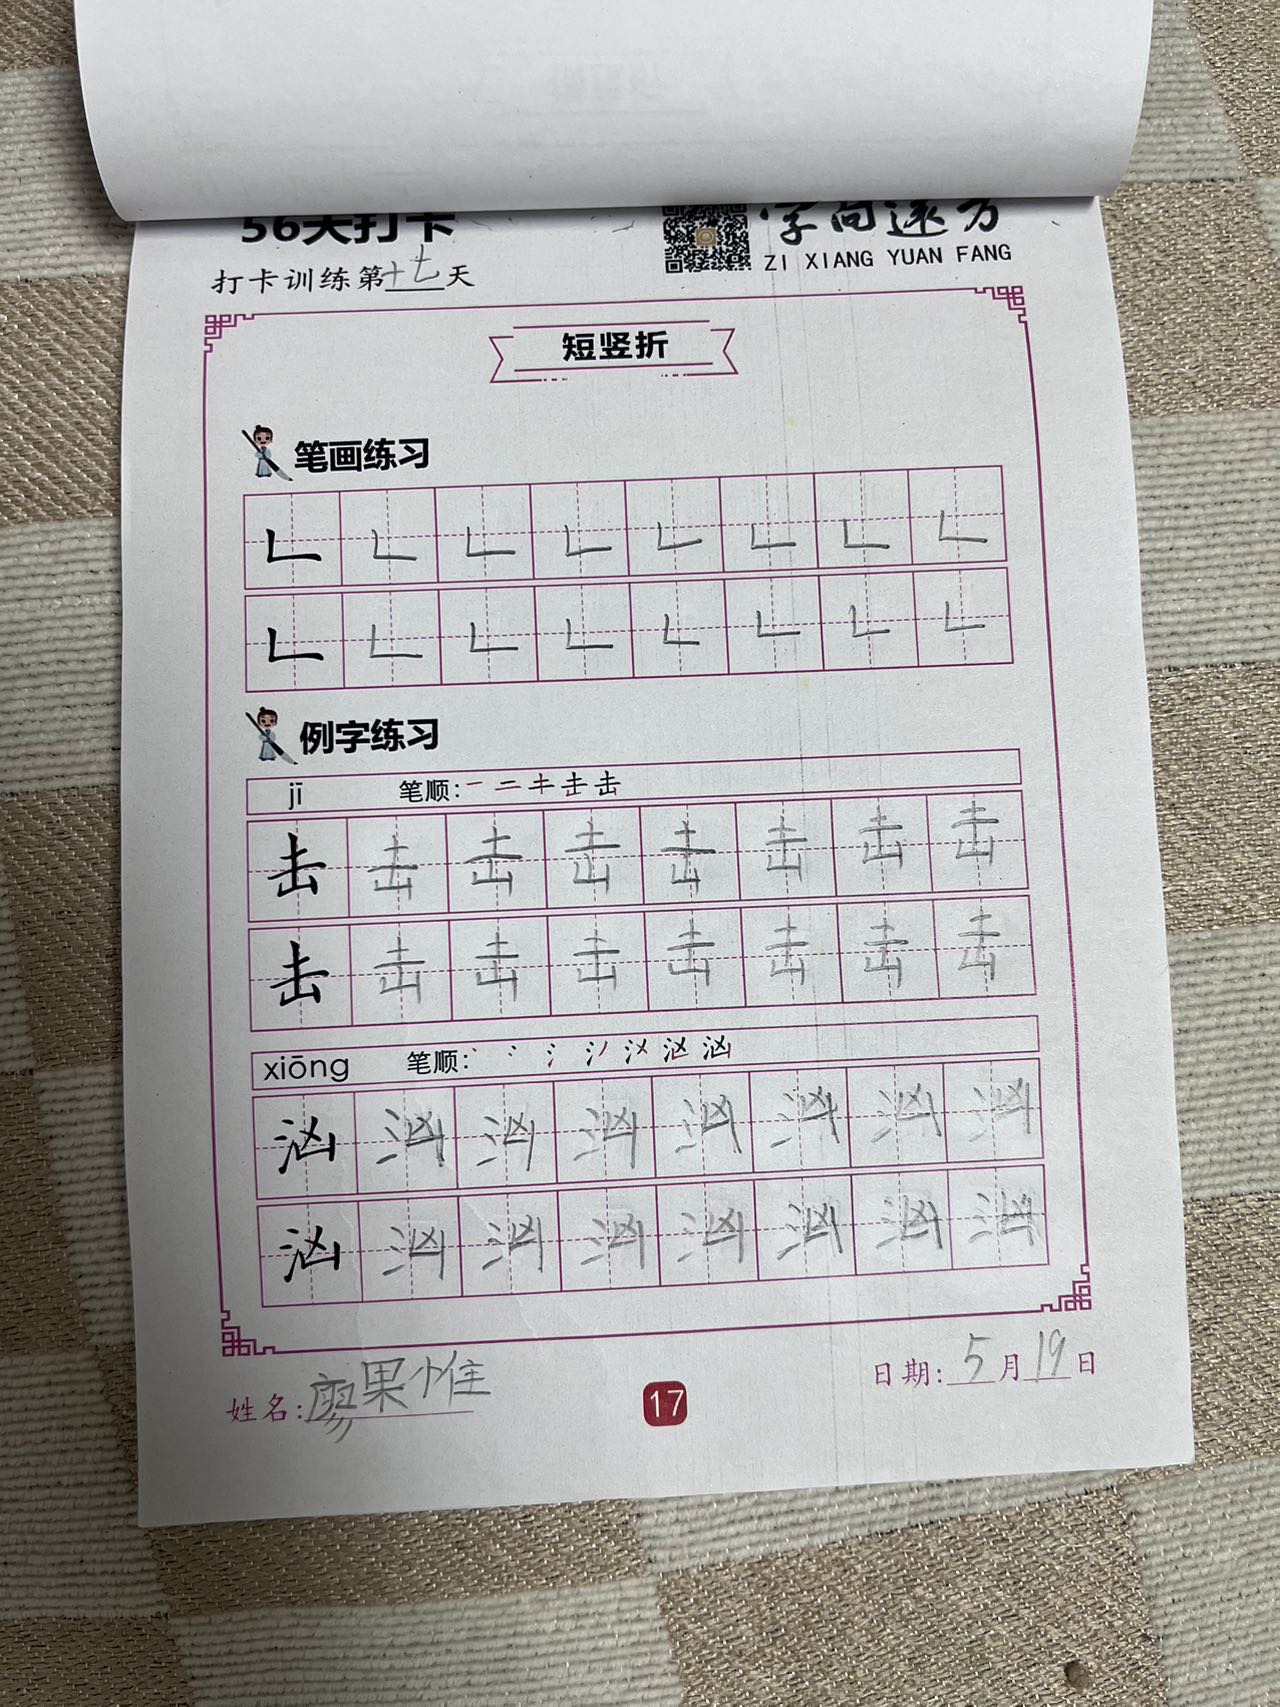 56天打卡
字向远方
ZI XIANG YUAN FANG
打卡训练第十七天
短竖折
笔画练习
例字练习
jī 笔顺:一 二 キ 击 击
击 击 击 击 击 击 击 击
击 击 击 击 击 击 击 击
xiōng 笔顺:
汹 汹 汹 汹 汹 汹 汹 汹
汹 汹 汹 汹 汹 汹 汹 汹
姓名:廖果惟
17
日期:5月19日